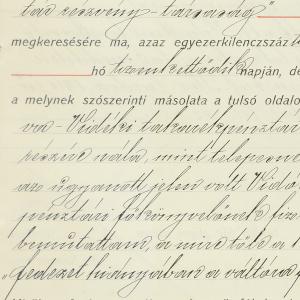 tár részvény-társaság"
megkeresésére ma, azaz egyezerkilenczszáz
hó tizenkettedik napján, de
a melynek szószerinti másolata a tulsó oldalo
va - Vidéki takarékpénztár
részéc nála, mint telepesnél
az ugyanott jelen volt Vidé
pénztári főkönyvelőnek fize
bemutattam, a mire tőle a
„fedezet hiányában a váltóra